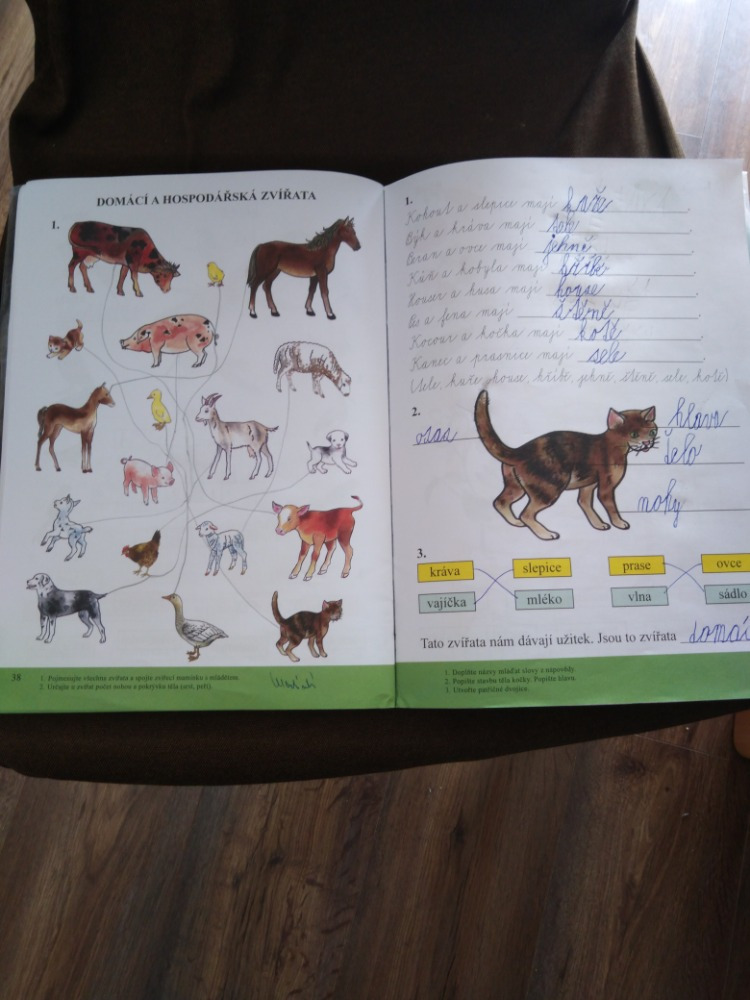 DOMÁCÍ A HOSPODÁŘSKÁ ZVÍŘATA
1.
38
1. Pojmenujte všechna zvířata a spojte zvířecí maminku s mládětem.
2. Určujte u zvířat počet nohou a pokrývku těla (srst, peří).
1.
Kohout a slepice mají kuře.
Býk a kráva mají tele.
Beran a ovce mají jehně.
Kůň a kobyla mají hříbě.
Houser a husa mají house!
Pes a fena mají štěně.
Kocour a kočka mají kotě.
Kanec a prasnice mají sele.
(Tele, kuře, house, hříbě, jehně, štěně, sele, kotě)
2.
hlava
ocas
tělo
nohy
3.
kráva slepice prase ovce
vajíčka mléko vlna sádlo
Tato zvířata nám dávají užitek. Jsou to zvířata domác
1. Doplňte názvy mláďat slovy z nápovědy.
2. Popište stavbu těla kočky. Popište hlavu.
3. Utvořte patřičné dvojice.